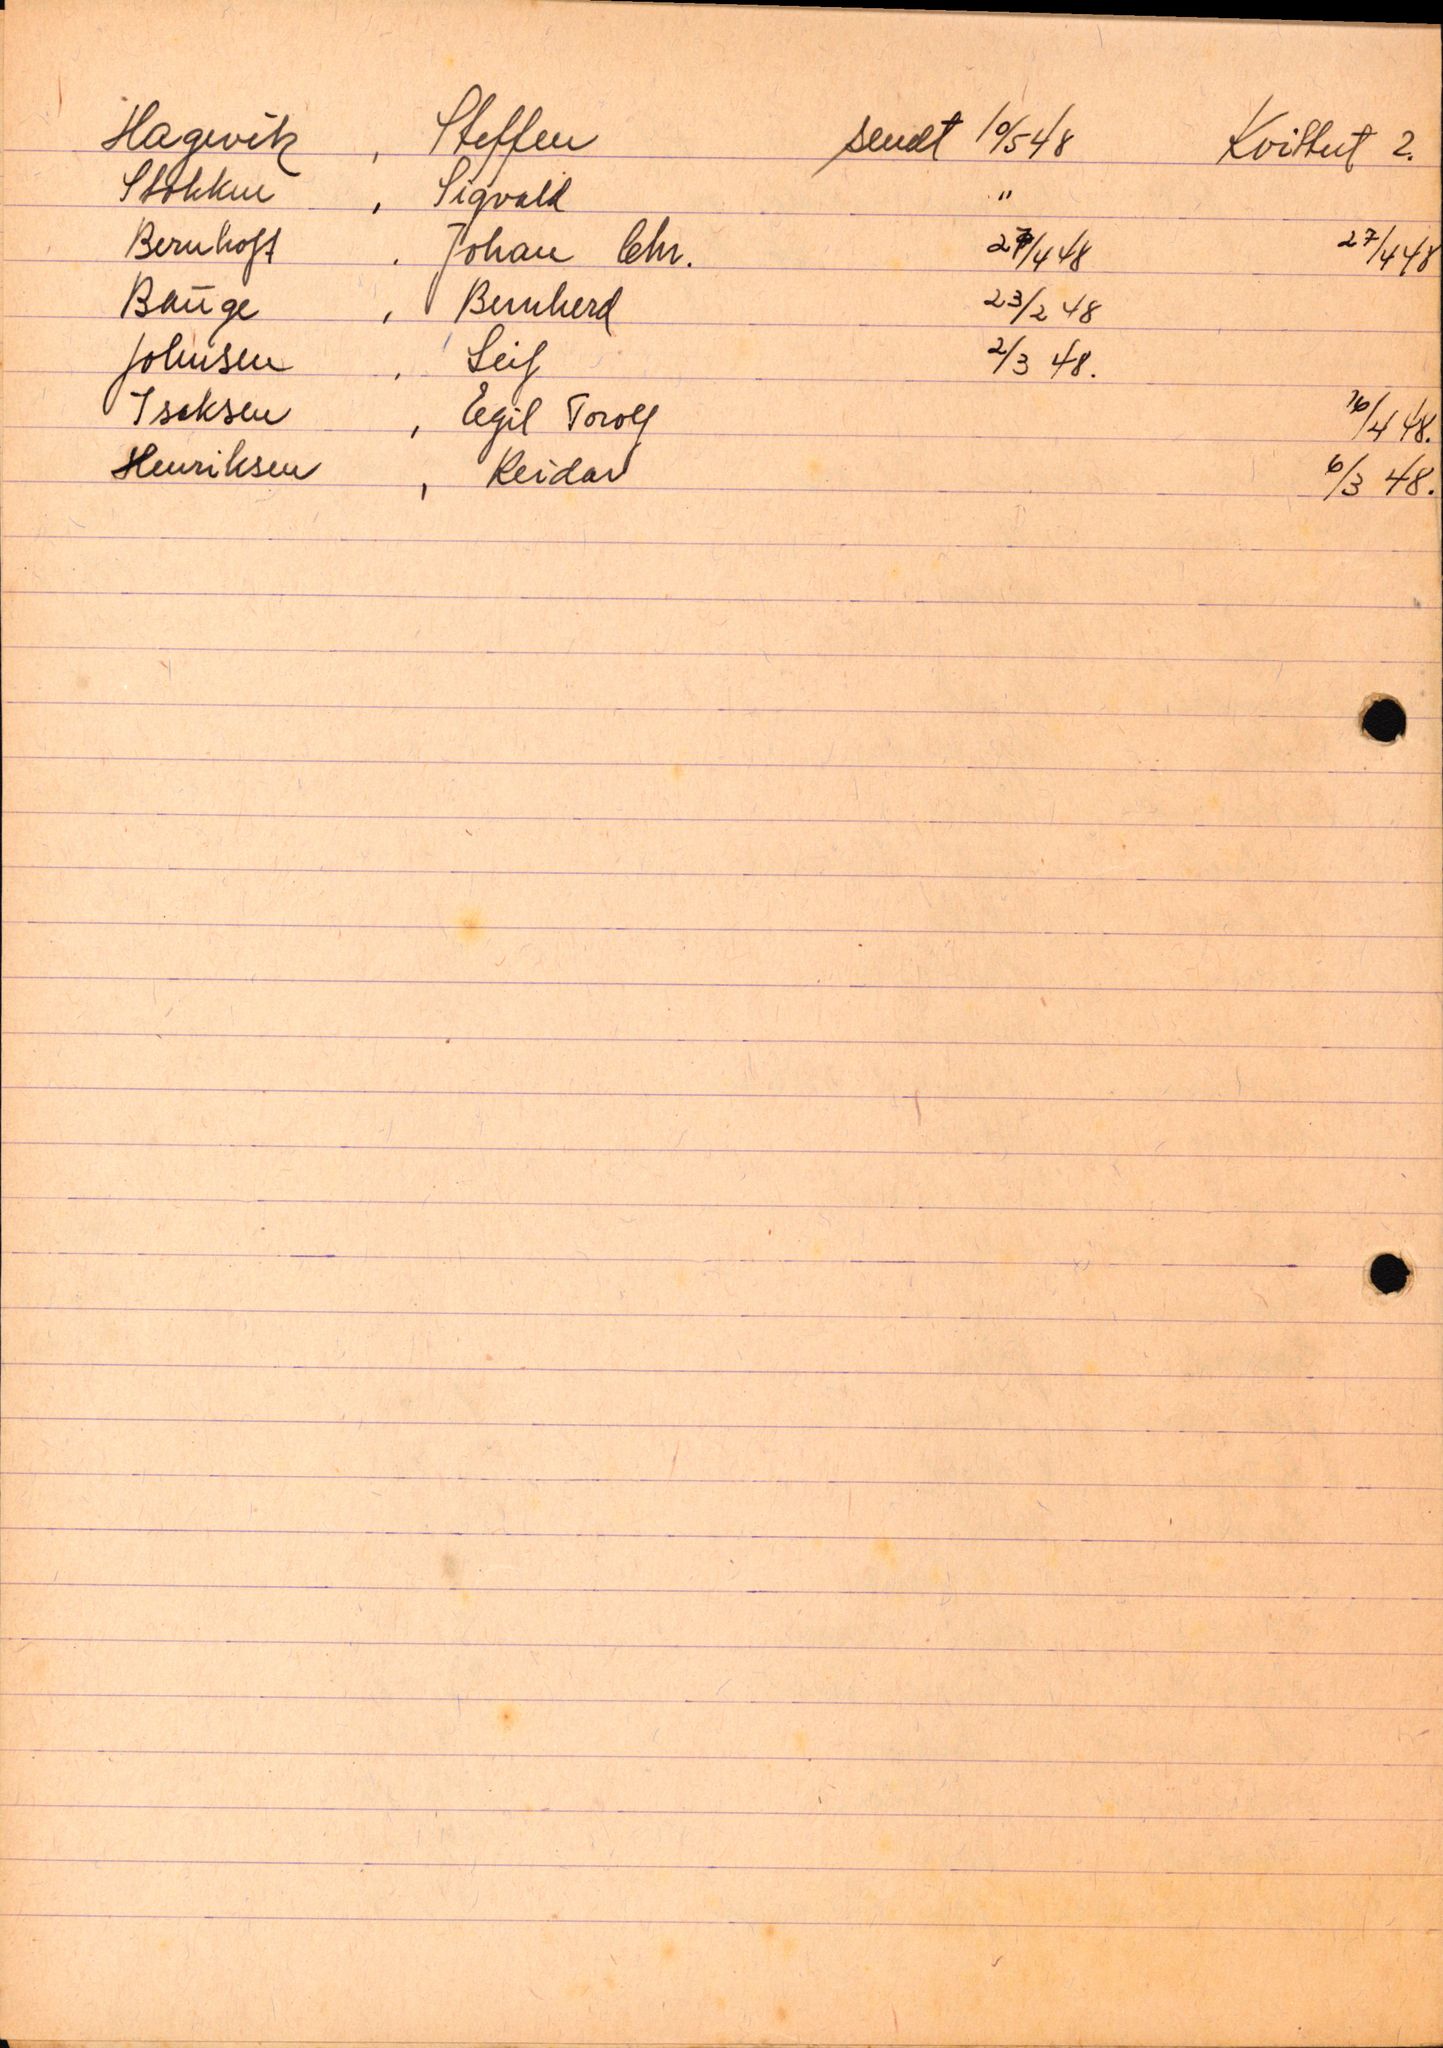 Hagevik, Steffen sendt 10/5 48 Kvittert 2.
Stokken, Sigvald "
Bernhoft, Johan Chr. 27/4 48 27/4 48
Bauge, Bernherd 23/2 48
Johnsen, Leif 2/3 48.
Isaksen, Egil Torolf 16/4 48.
Henriksen, Reidar 6/3 48.